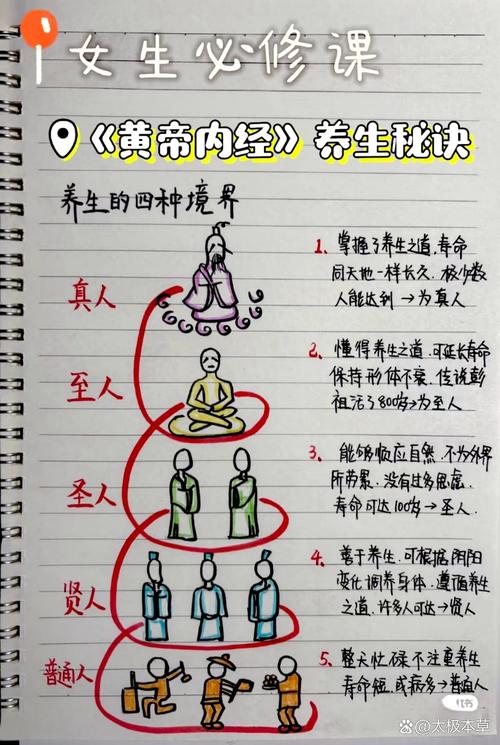 女生必修课
《黄帝内经》养生秘诀
养生的四种境界
真人
1、掌握了养生之道,寿命
同天地一样长久、极少数
人能达到→为真人
至人
2、懂得养生之道、可延长寿命
保持形体不衰、传说彭
祖活了800岁→为至人
圣人
3、能够顺应自然、不为外界
所劳累、没有过多思虑
寿命可达100岁→圣人.
贤人
4、善于养生、可根据阴阳
变化调养身体、遵循养生
之道、许多人可达→贤人
普通人
5、整天忙碌不注重养生
寿命短、或病多→普通人
@太极本草